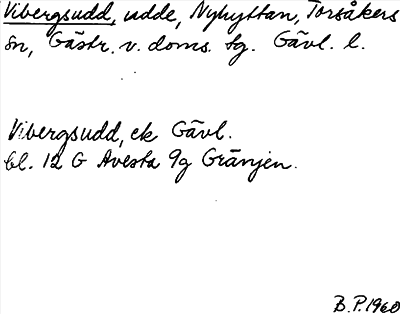 Vibergsudd, udde, Nyhyttan, Torsåkers
sn, Gästr. v. doms. tg. Gävl. l.
Vibergsudd, ek Gävl.
bl. 12 G Avesta 9g Gränjen.
B.P. 1960